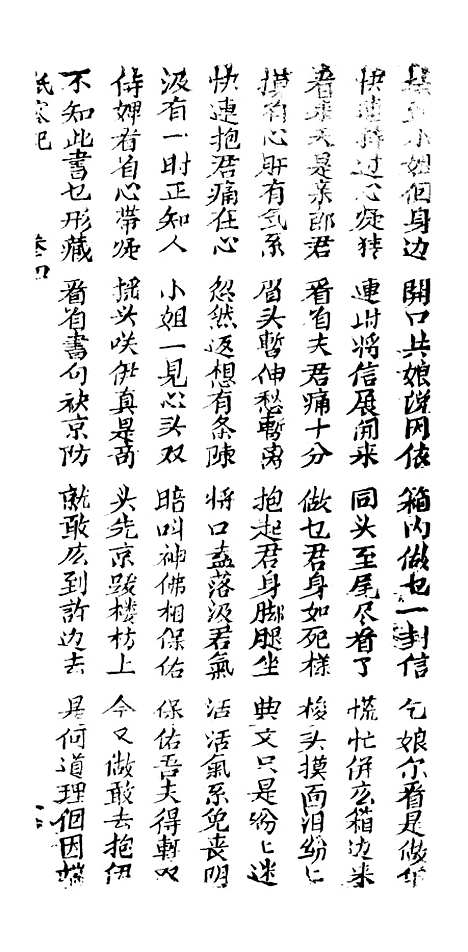 至小姐個身边　開口共娘說因依　箱内做乜一封信　乞娘尔看是做
快連过心疑猜　連时將信展開来　同头至尾尽看了　慌忙併庅箱边来
看来夫是亲郎君　看省夫君痛十分　做乜君身如死樣　梭头摸面泪纷匕
摸省心肝有气系　眉头暫伸愁暫离　抱起君身脚腿坐　典文只是纷匕迷
快連抱君痛在心　忽然返想有条陳　將口盍落汲君氣　活活氣系免丧明
汲有一时正知人　小姐一見心头双　暗叫神佛相保佑　保佑吾夫得暫双
侍婢看省心帶疑　摇头咲伊真是奇　头先京跋楼枋上　今又做敢去抱伊
不知此書乜形藏　看省書句袂京防　就敢庅到許边去　是何道理個因端
卷四